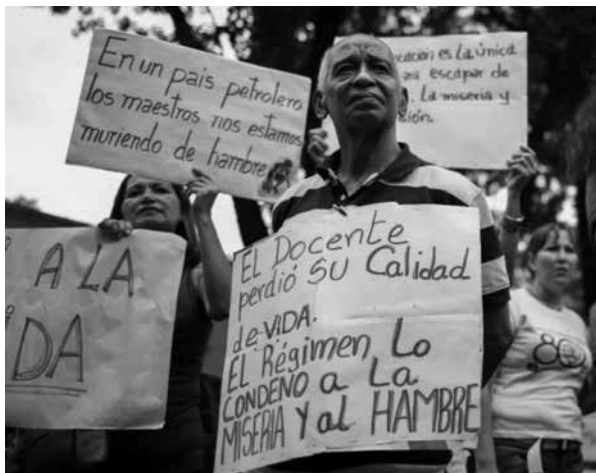 En un país petrolero
los maestros nos estamos
muriendo de hambre
es La única
escapar de
La miseria y
A LA
El Docente
perdió SU Calidad
de-VIDA.
El Régimen Lo
CONDENO a La
MISERIA Y al HAMBRE